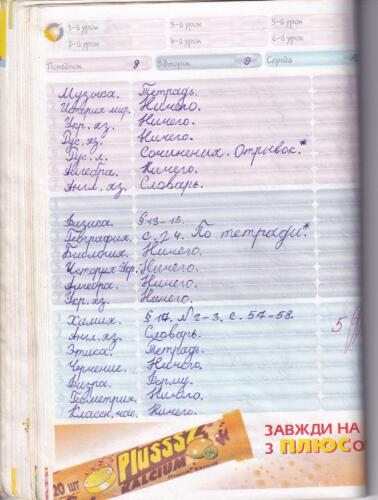 1-й урок 3-й урок 5-й урок
2-й урок 4-й урок 6-й урок
Понеділок 8 Вівторок 9 Середа
Музыка. Тетрадь.
История мир. Ничего.
Укр. яз. Ничего.
Рус. яз. Ничего.
Рус. л. Сочинения. Отрывок.*
Алгебра. Ничего.
Англ. яз. Словарь.
Физика. § 13-15.
География. с. 24. По тетради.*
Биология. Ничего.
История Укр. Ничего.
Алгебра. Ничего.
Укр. яз. Ничего.
Химия. § 17. № 2-3. с. 57-58.
Англ. яз. Словарь.
5
Этика. Тетрадь.
Черчение. Ничего.
Физра. Форму.
Геометрия. Ничего.
Классн. час. Ничего.
ЗАВЖДИ НА
З ПЛЮСО
Plusssz
KALCIUM
20 ШТ